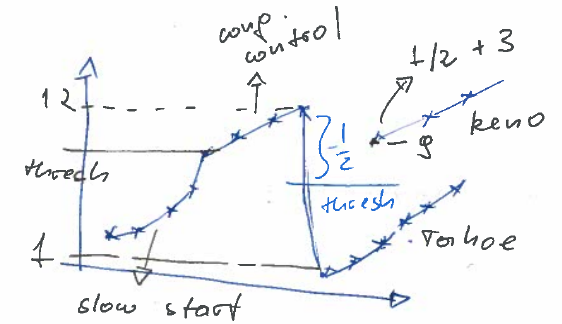 cong
control
1/2 + 3
12
9
Reno
thresh
1/2
thresh
Tahoe
1
slow start